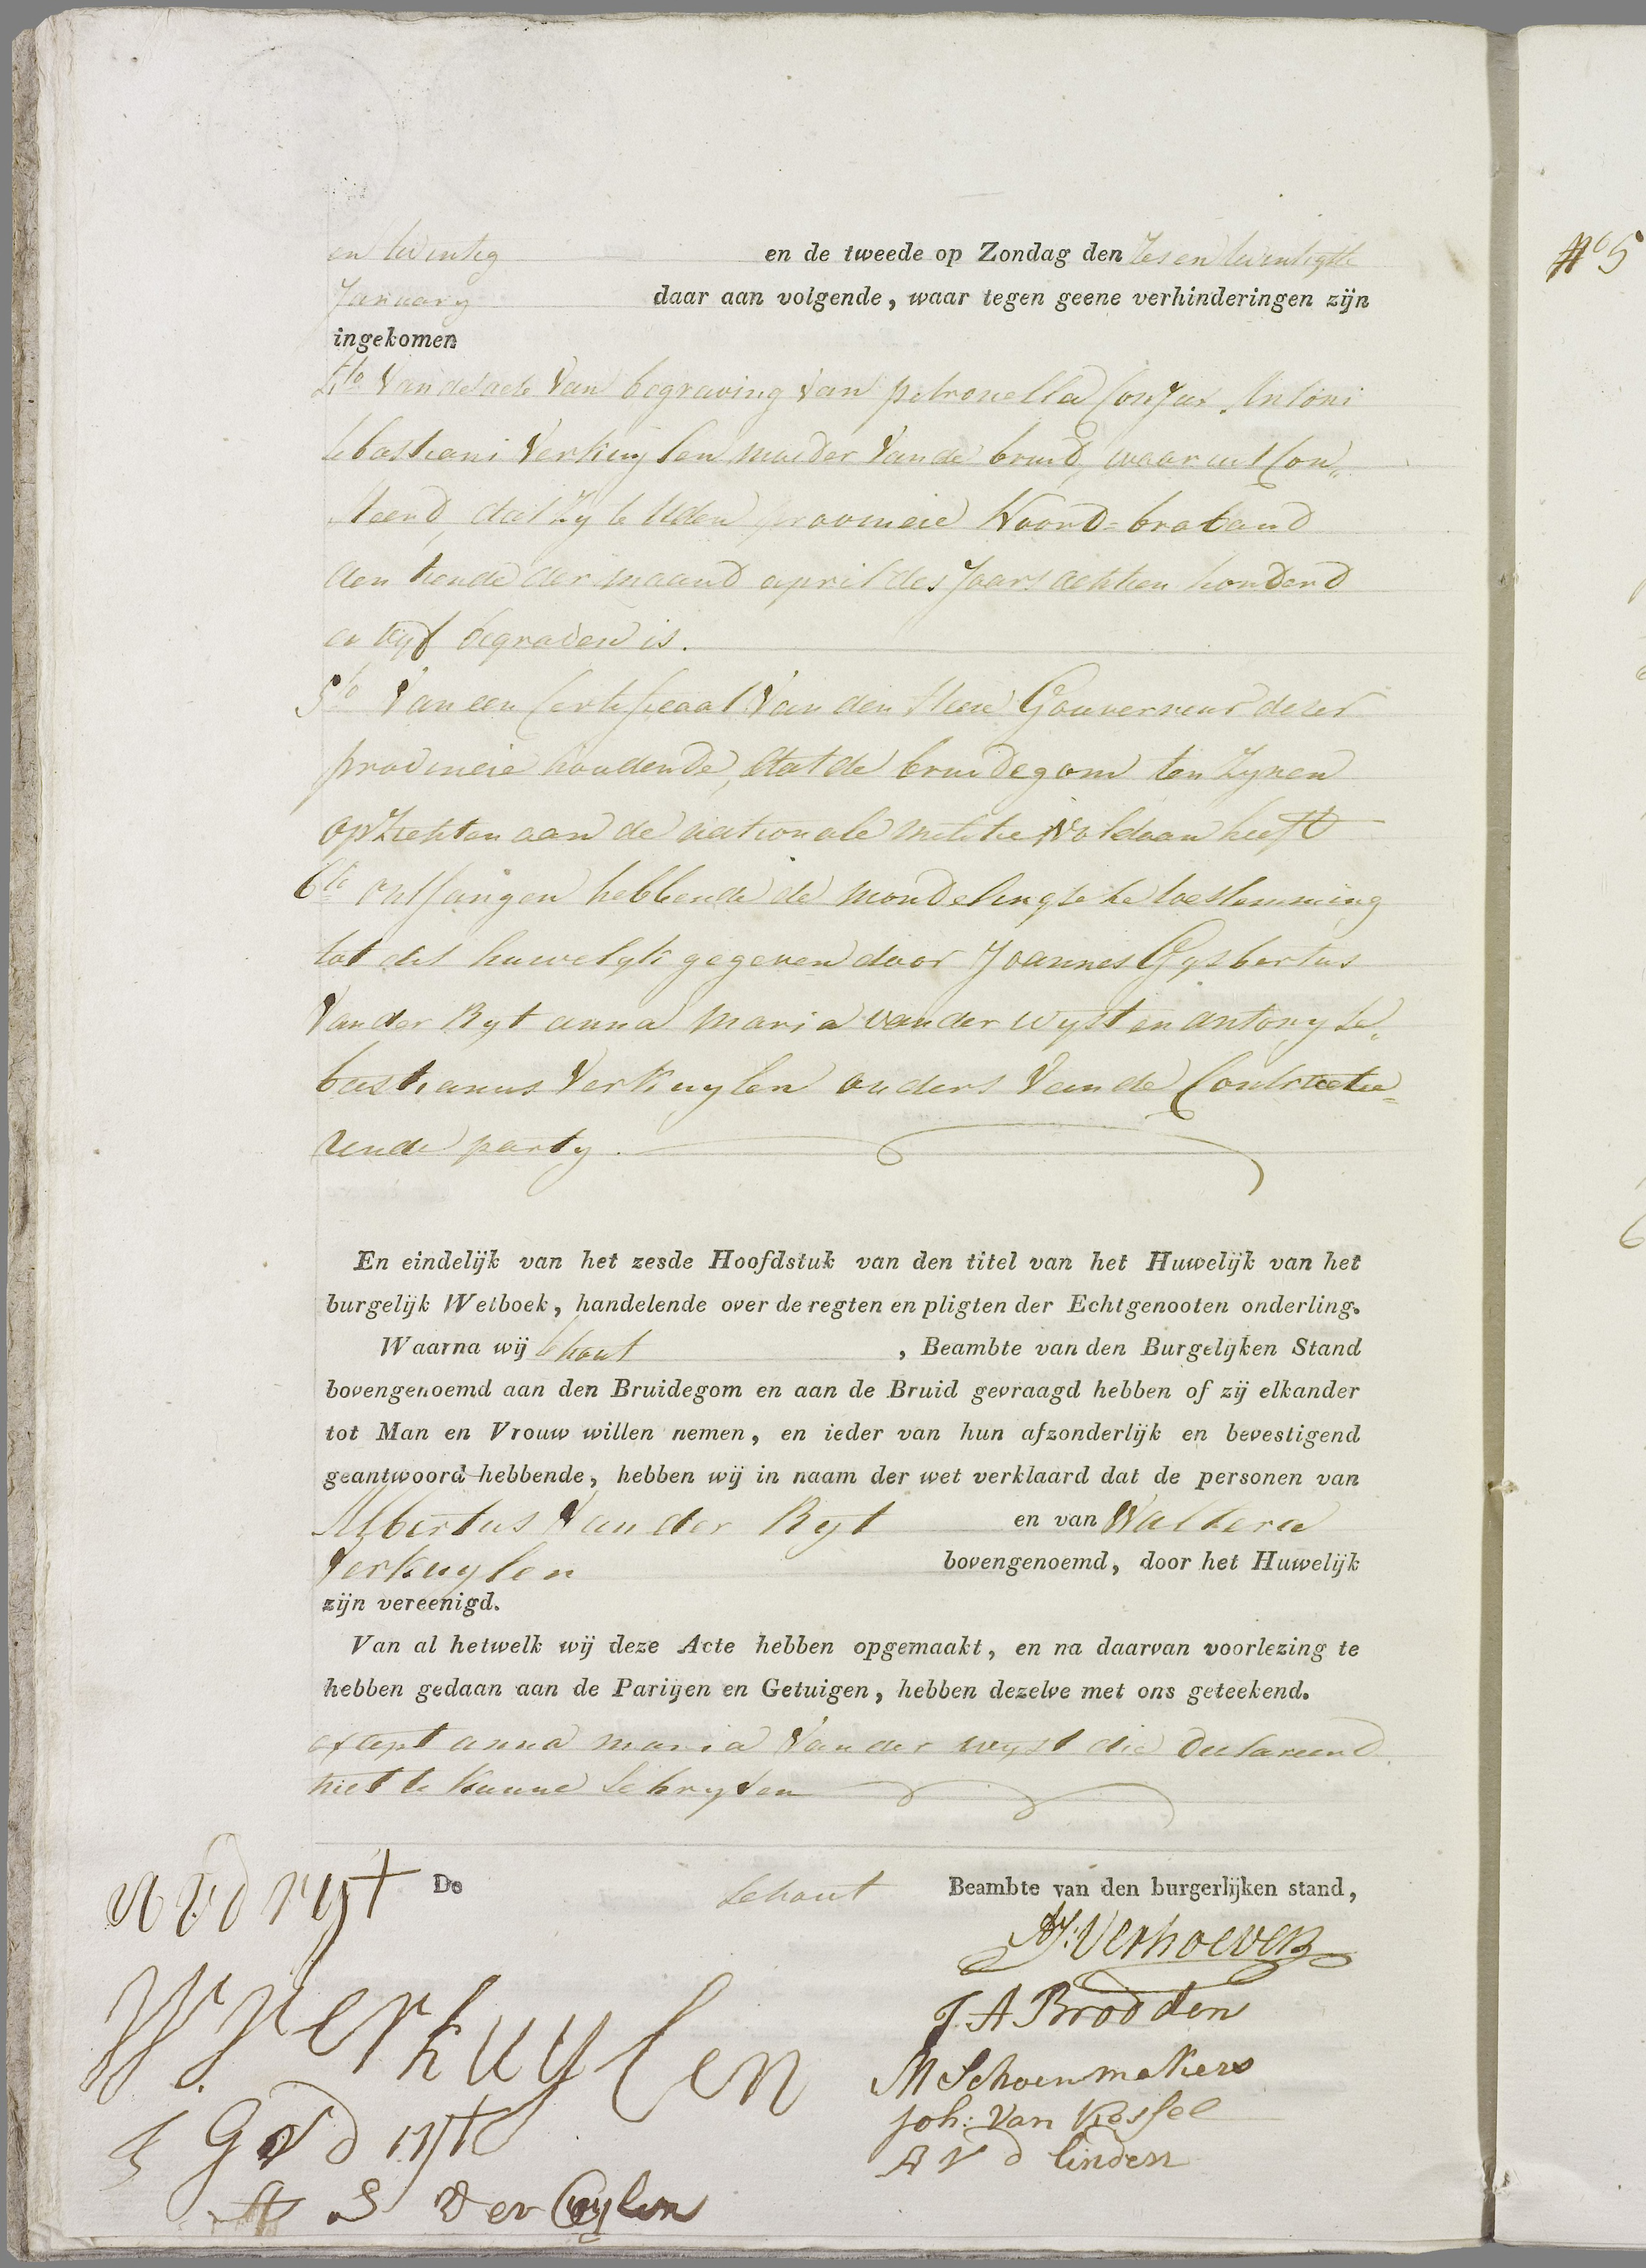 en twintig en de tweede op Zondag den Zes en twintigste
January daar aan volgende, waar tegen geene verhinderingen zijn
ingekomen
4to Van de acte Van begraving Van petronella Conjux Antoni
Sebastiani Verkuylen moeder Van de bruid, waar uit Con„
steerd, dat Zy te Uden provincie Noord=braband
den tiende der maand april des Jaars achttien honderd
en vyf begraven is.
5to Van een Certificaat Van den Heer Gouverneur dezer
provincie houdende, dat de bruidegom ten Zynen
opzichten aan de nationale militie Voldaan heeft
6to ontfangen hebbende de mondelingsche toestemming
tot dit huwelyk gegeven door Joannes Gysbertus
Van der Ryt anna maria van der wyst en antony Se„
bastianus Verkuylen ouders Van de Contractee=
rende party.
En eindelijk van het zesde Hoofdstuk van den titel van het Huwelijk van het
burgelijk Wetboek, handelende over de regten en pligten der Echtgenooten onderling.
Waarna wij Schout , Beambte van den Burgelijken Stand
bovengenoemd aan den Bruidegom en aan de Bruid gevraagd hebben of zij elkander
tot Man en Vrouw willen nemen, en ieder van hun afzonderlijk en bevestigend
geantwoord hebbende, hebben wij in naam der wet verklaard dat de personen van
Albertus Van der Ryt en van Waltera
Verkuylen bovengenoemd, door het Huwelijk
zijn vereenigd.
Van al hetwelk wij deze Acte hebben opgemaakt, en na daarvan voorlezing te
hebben gedaan aan de Partijen en Getuigen, hebben dezelve met ons geteekend.
except anna maria Van der wyst die declareerd
niet te kunne Schryven
De Schout Beambte van den burgerlijken stand,
A V d ryt
Verhoeven
W. Verkuylen
J. A Brodden
M Schoenmakers
J G V d ryt
Joh: Van Kessel
A V d linden
A S Vercuylen
No 5
6